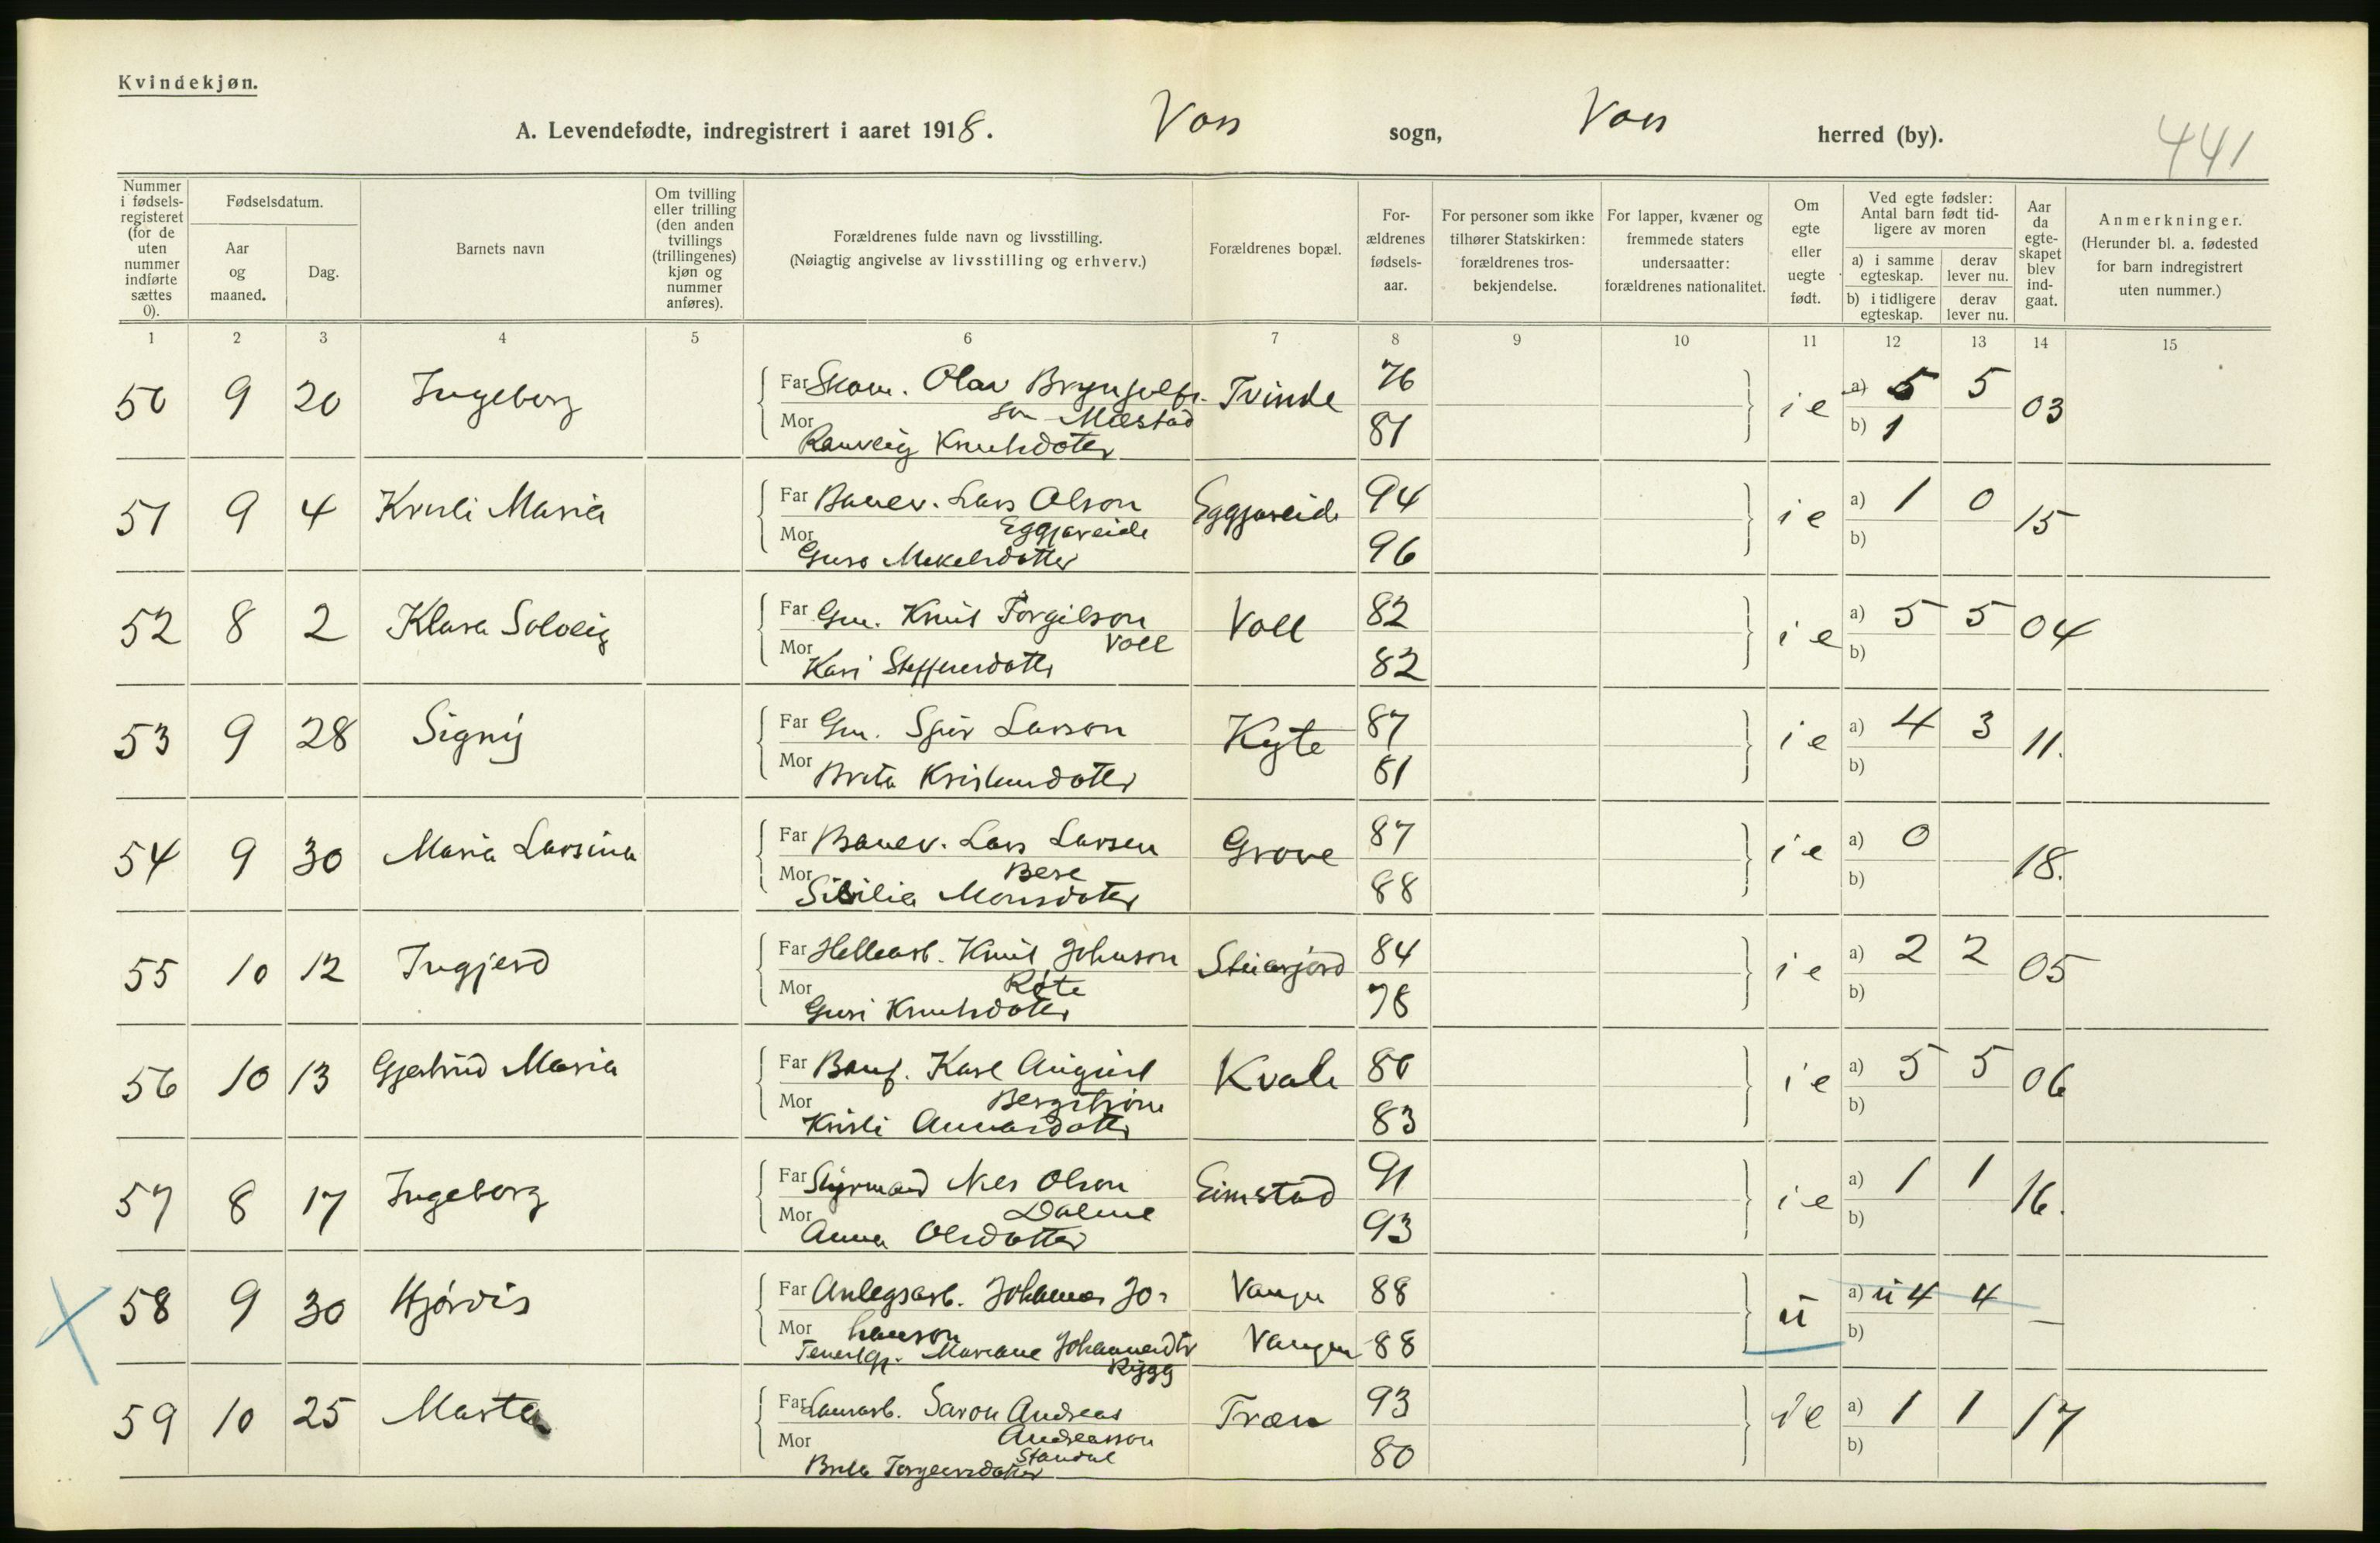 Kvindekjøn.
A. Levendefødte, indregistrert i aaret 1918. Voss sogn, Voss herred (by). 441
Nummer i fødsels-registeret (for de uten nummer indførte sættes 0).
Fødselsdatum.
Aar og maaned.
Dag.
Barnets navn
Om tvilling eller trilling (den anden tvillings (trillingenes) kjøn og nummer anføres).
Forældrenes fulde navn og livsstilling.
(Nøiagtig angivelse av livsstilling og erhverv.)
Forældrenes bopæl.
For-ældrenes fødsels-aar.
For personer som ikke tilhører Statskirken: forældrenes tros-bekjendelse.
For lapper, kvæner og fremmede staters undersaatter: forældrenes nationalitet.
Om egte eller uegte født.
Ved egte fødsler: Antal barn født tid-ligere av moren
a) i samme egteskap.
derav lever nu.
b) i tidligere egteskap.
derav lever nu.
Aar da egte-skapet blev ind-gaat.
Anmerkninger.
(Herunder bl. a. fødested for barn indregistrert uten nummer.)
1 2 3 4 5 6 7 8 9 10 11 12 13 14 15
50 9 20 Ingeborg Far Skom. Olav Brynjulfs- Tvinde 76 i e a) 5 5 03
son Mæstad
Mor Ranveig Knutsdoter 81 b) 1
51 9 4 Kristi Maria Far Banev. Lars Olson Eggjareide 94 i e a) 1 0 15
Eggjareide
Mor Guro Mikelsdotter 96 b)
52 8 2 Klara Solveig Far Gm. Knut Torgilson Voll 82 i e a) 5 5 04
Voll
Mor Kari Steffensdotter 82 b)
53 9 28 Signy Far Gm. Sjur Larson Kyte 87 i e a) 4 3 11.
Mor Brita Kristensdotter 81 b)
54 9 30 Maria Larsina Far Banev. Lars Larsen Grove 87 i e a) 0 18.
Mor Sisilia Monsdoter 88 b)
55 10 12 Ingjerd Far Hellearb. Knut Johnson 84 i e a) 2 2 05
Røte
Mor Guri Knutsdoter 78 b)
56 10 13 Gjertrud Maria Far Karl August Kvale 80 i e a) 5 5 06
Bergstrøm
Mor Kristi 83 b)
57 8 17 Ingeborg Far Styrmand Nils Olson Eimstad 91 i e a) 1 1 16.
Mor Anna Olsdotter 93 b)
58 9 30 Hjørdis Far Anlegsarb. Johannes Jo- Vangen 88 u a) u 4 4 —
hanson
Mor Mariane Johannesdtr Vangen 88 b)
Rygg
59 10 25 Marta Far Andreas Træn 93 i e a) 1 1 17
Andreasson
Standal
Mor Brita Torgeirsdotter 80 b)